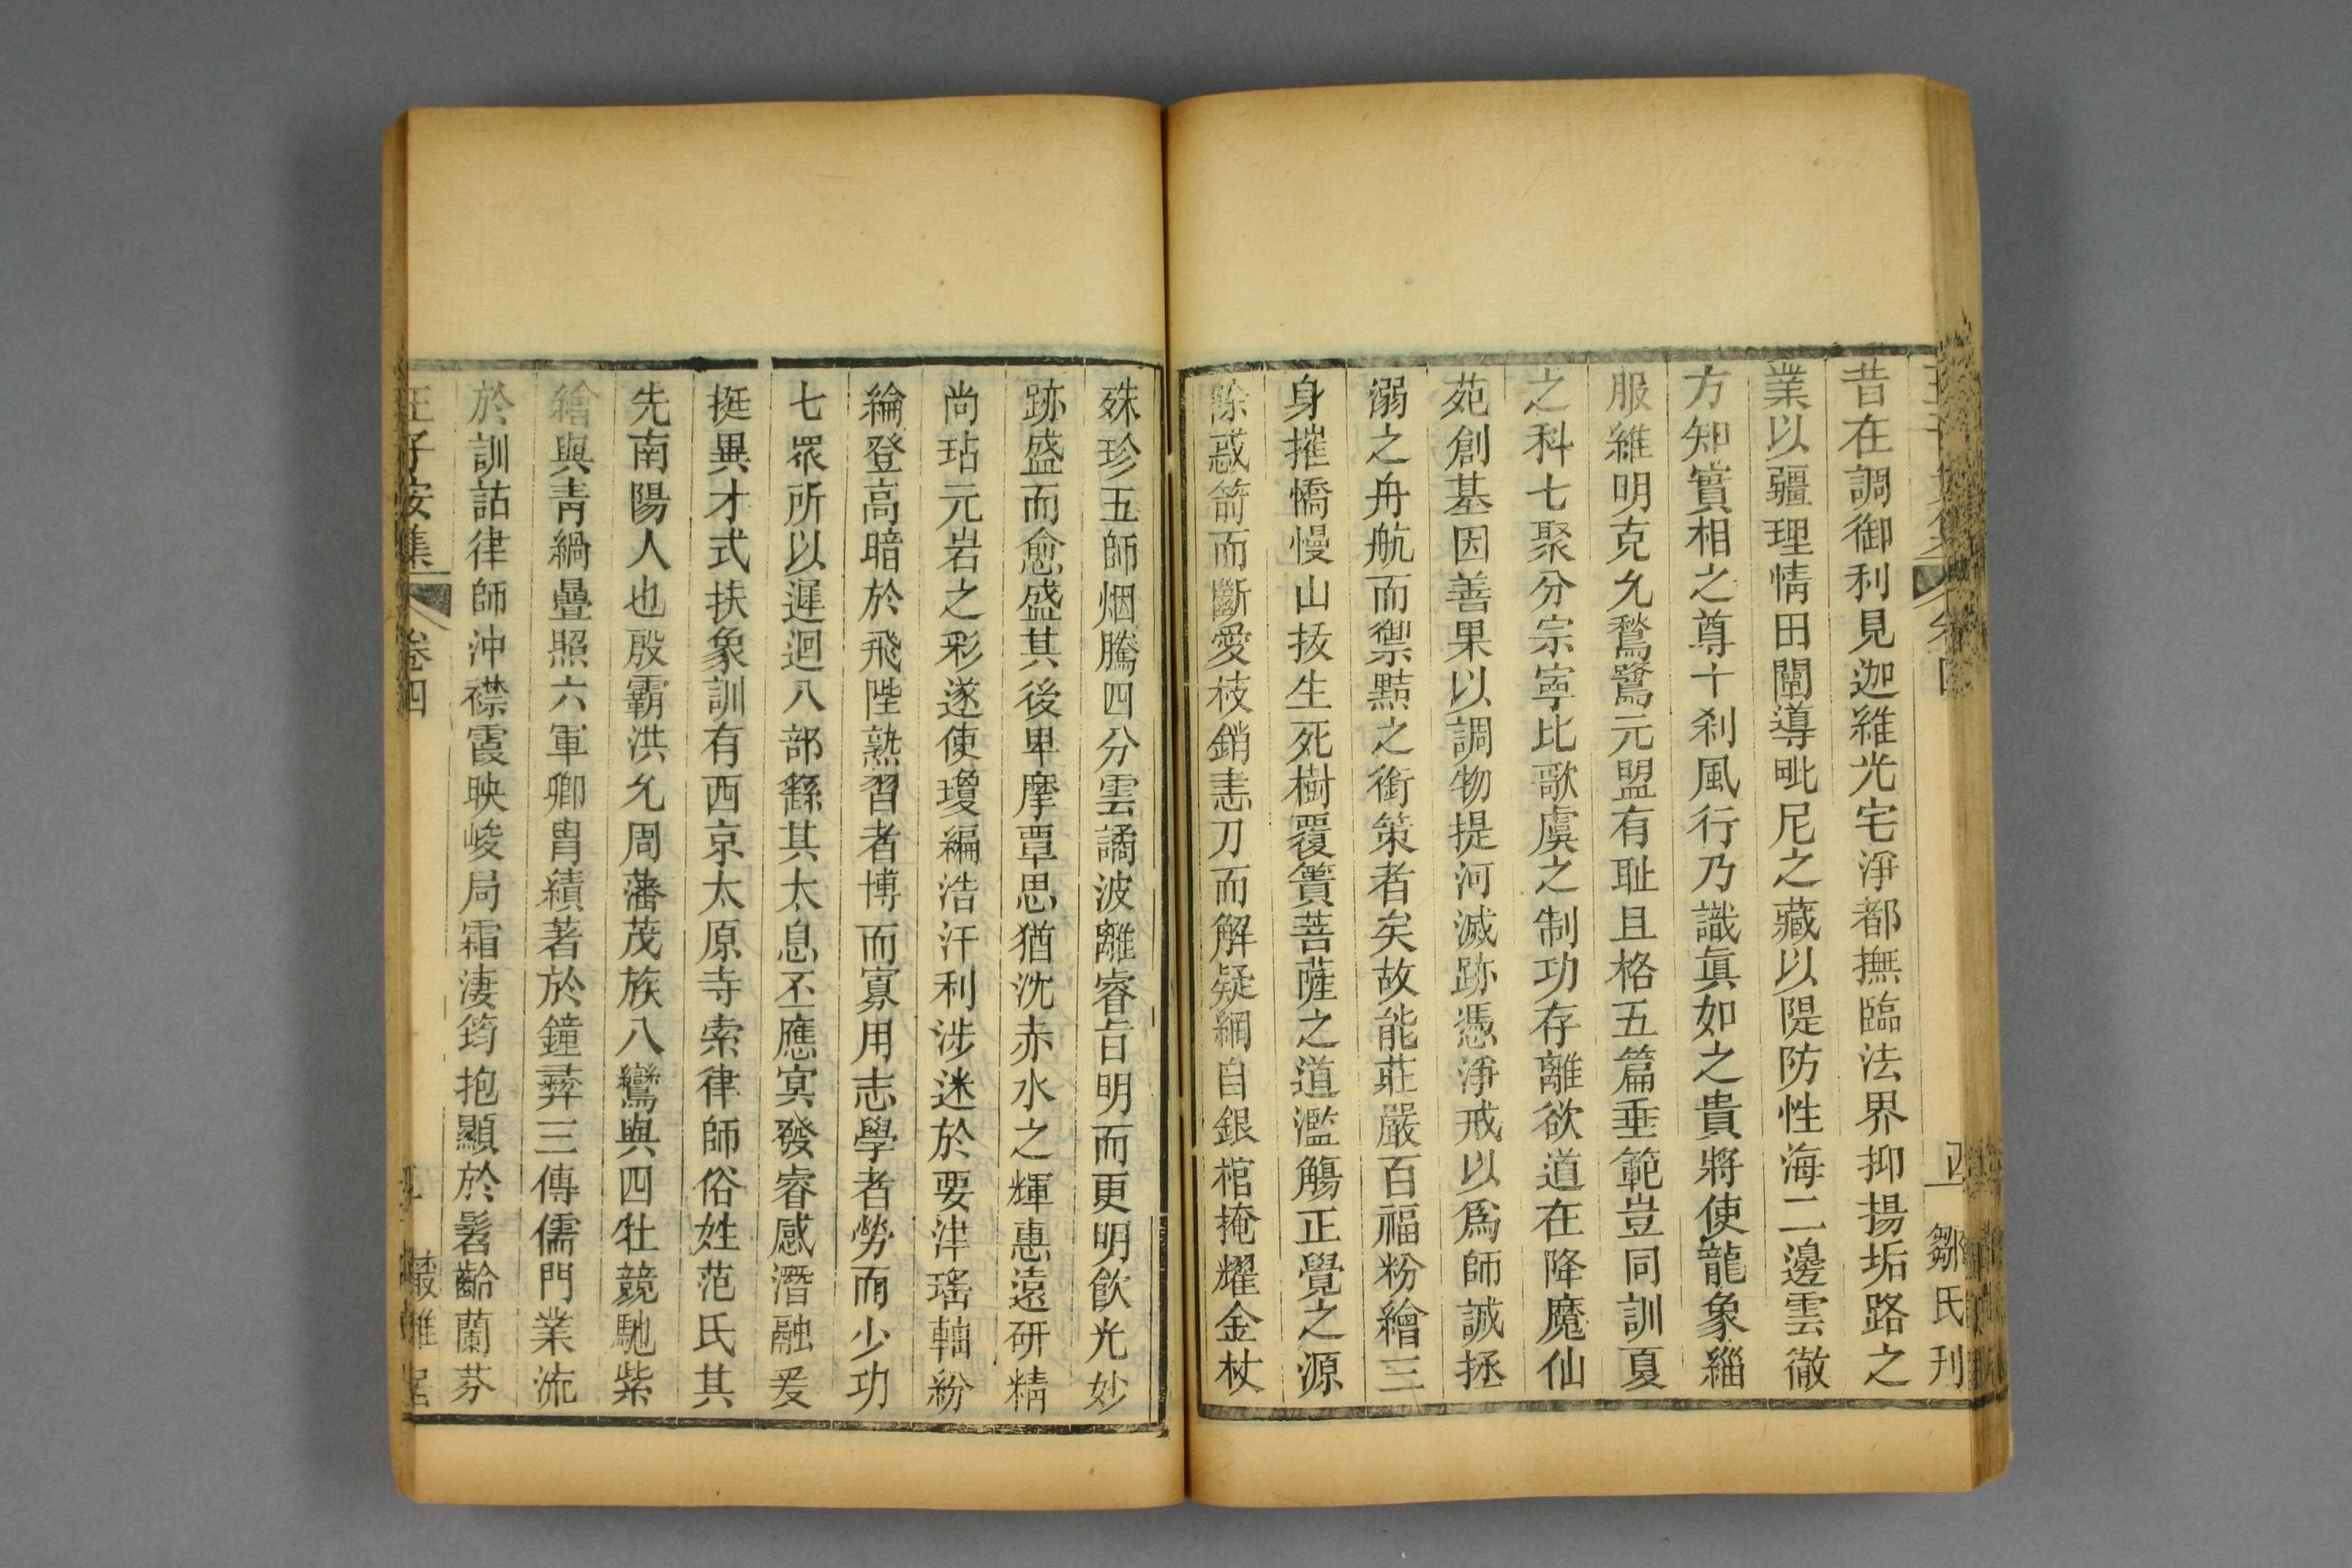 昔在調御利見迦維光宅淨都撫臨法界抑揚垢路之
業以疆理情田闡導毗尼之藏以隄防性海二邊雲徹
方知實相之尊十刹風行乃識眞如之貴將使龍象緇
服維明克允鶖鷺元盟有耻且格五篇垂範豈同訓夏
之科七聚分宗寧比歌虞之制功存離欲道在降魔仙
苑創基因善果以調物提河滅跡憑淨戒以爲師誠拯
溺之舟航而禦黠之銜策者矣故能莊嚴百福粉繪三
身摧憍慢山拔生死樹覆簣菩薩之道濫觴正覺之源
除惑箭而斷愛枝銷恚刀而解疑網自銀棺掩耀金杖
殊珍五師烟騰四分雲譎波離睿旨明而更明飮光妙
跡盛而愈盛其後卑摩覃思猶沈赤水之輝惠遠研精
尚玷元岩之彩遂使瓊編浩汗利涉迷於要津瑤軸紛
綸登高暗於飛陛熟習者博而寡用志學者勞而少功
七眾所以遲迴八部繇其太息丕應冥發睿感潛融爰
挺異才式扶象訓有西京太原寺索律師俗姓范氏其
先南陽人也殷霸洪允周藩茂族八鸞與四牡競馳紫
繪與靑緺疊照六軍卿胄績著於鐘彝三傳儒門業流
於訓詁律師沖襟霞映峻局霜淒筠抱顯於髫齡蘭芬
王子安集 卷四
鄒氏刊